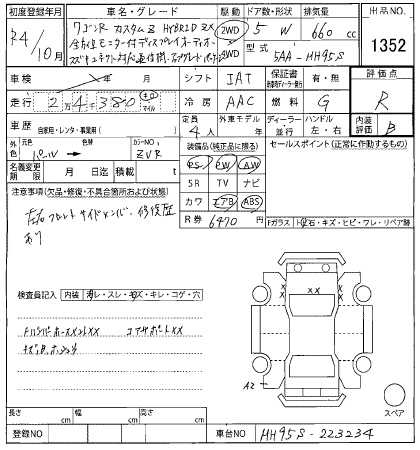 初度登録年月 車名・グレード 駆動 ドア数・形状 排気量 出品NO.
R4/10月 ワゴンR カスタムZ HYBRID ZX 2WD 4WD 5 W 660 cc 1352
全方位モニター付ディスプレイオーディオ
型式 5AA-HH95S
車検 年 月 シフト IAT 保証書 有・無 評価点
走行 2万4千380 km マイル 冷房 AAC 燃料 G R
車歴 自家用・レンタ・事業用( ) 定員 4人 外車モデル 年 ディーラー 並行 ハンドル 左・右 内装評価 B
外色 元色 パール 色替 カラーNO. ZVR
装備品(純正品に限る) セールスポイント(正常に作動するもの)
名義変更期限 月 日迄 積載 t
PS PW AW
SR TV ナビ
カワ エアB ABS
R券 6470 円
注意事項(欠品・修復・不具合箇所および状態)
左右フロントサイドメンバ 修復歴
あり
Fガラス トビ石・キズ・ヒビ・ワレ・リペア跡
検査員記入 内装 汚レ・スレ・キズ・キレ・コゲ・穴
コアサポートXX
X X
X X
A2
スペア
長さ cm 幅 cm 高さ cm
登録NO 車台NO HH95S-223234